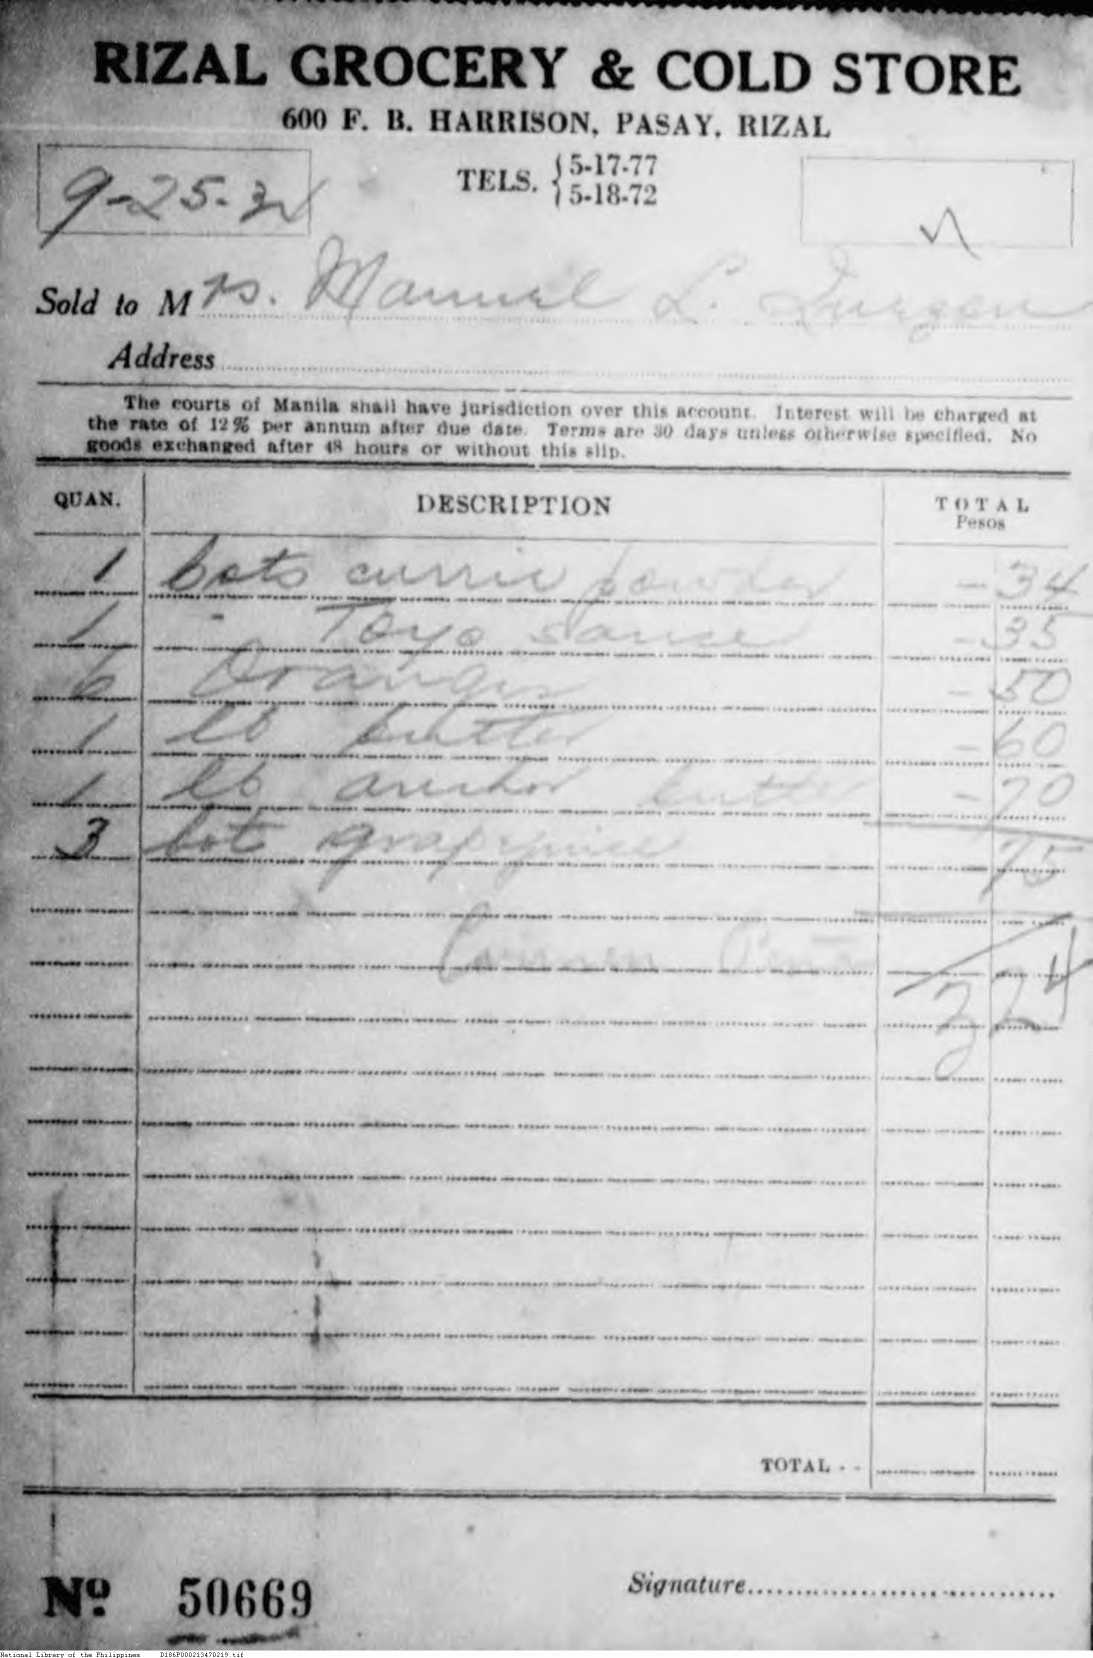 RIZAL GROCERY & COLD STORE
600 F. B. HARRISON, PASAY, RIZAL
TELS. { 5-17-77
5-18-72
9-25-32
Sold to Mrs. Manuel L. Quezon
Address
The courts of Manila shall have jurisdiction over this account. Interest will be charged at
the rate of 12% per annum after due date. Terms are 30 days unless otherwise specified. No
goods exchanged after 48 hours or without this slip.
QUAN. DESCRIPTION TOTAL
Pesos
1 bots currie powder -34
1 - Toyo sauce -35
6 Oranges -50
1 lb butter -60
1 lb anchor butter -70
3 bot grapejuice 75
Carmen
3 24
TOTAL - -
Nº 50669
Signature
National Library of the Philippines D186P000213470219.tif